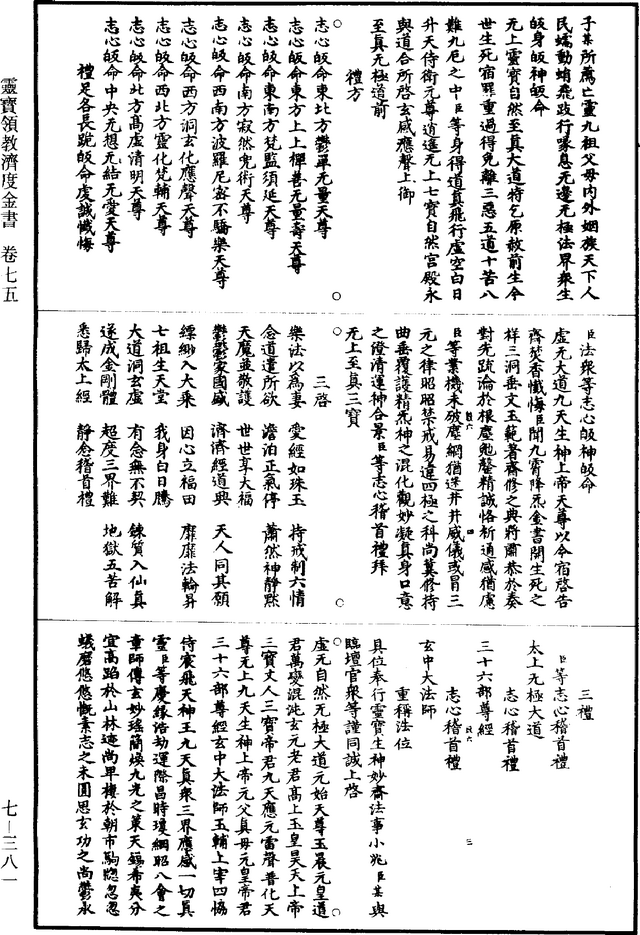 靈寶領教濟度金書　卷七五
七—三八一
于某所薦亡靈九祖父母內外姻族天下人
民蠕動蛸飛跂行喙息无邊无極法界衆生
皈身皈神皈命
无上靈寶自然至真大道特乞原赦前生今
世生死宿罪重過得免離三惡五道十苦八
難九厄之中臣等身得道真飛行虛空白日
升天侍衛元尊逍遙无上七寶自然宫殿永
與道合所啓玄感應聲上御
至真无極道前
禮方
志心皈命東北方鬱單无量天尊
志心皈命東方上上禪善无量壽天尊
志心皈命東南方梵監須延天尊
志心皈命南方寂然兜術天尊
志心皈命西南方波羅尼密不驕樂天尊
志心皈命西方洞玄化應聲天尊
志心皈命西北方靈化梵輔天尊
志心皈命北方高虛清明天尊
志心皈命中央无想无結无愛天尊
禮足各長跪皈命虔誠懺悔
臣法衆等志心皈神皈命
虛无大道九天生神上帝天尊以今宿啓告
齋焚香懺悔臣聞九霄降炁金書開生死之
祥三洞垂文玉範著齋修之典將肅恭於奏
對先疏瀹於根塵勉罄精誠恪祈通感猶慮
臣等業機未破塵網猶迷井井威儀或冒三
元之律昭昭禁戒易違四極之科尚冀修持
曲垂覆護精炁神之混化觀妙凝真身口意
之澄清運神合景臣等志心稽首禮拜
无上至真三寶
三啓
樂法以爲妻　愛經如珠玉　持戒制六情
念道遣所欲　澹泊正氣停　蕭然神靜默
天魔並敬護　世世享大福
鬱鬱家國盛　濟濟經道興　天人同其願
縹緲入大乘　因心立福田　靡靡法輪昇
七祖生天堂　我身白日騰
大道洞玄虛　有念無不契　鍊質入仙真
遂成金剛體　超度三界難　地獄五苦解
悉歸太上經　靜念稽首禮
三禮
臣等志心稽首禮
太上无極大道
志心稽首禮
三十六部尊經
志心稽首禮
玄中大法師
重稱法位
具位奉行靈寶生神妙齋法事小兆臣某與
臨壇官衆等謹同誠上啓
虛无自然无極大道元始天尊玉晨元皇道
君萬變混沌玄元老君高上玉皇昊天上帝
三寶丈人三寶帝君九天應元雷聲普化天
尊无上九天生神上帝元父真母元皇帝君
三十六部尊經玄中大法師玉輔上宰四協
侍宸飛天神王九天真衆三界應感一切真
靈臣等慶錄浩劫運際昌時瓊綱昭八會之
章師傳玄妙瑤簡煥九光之策天錫希夷分
宜高蹈於山林迹尚卑棲於朝市駒隙忽忽
蟻磨悠悠慨素志之未圓思玄功之尚鬱永